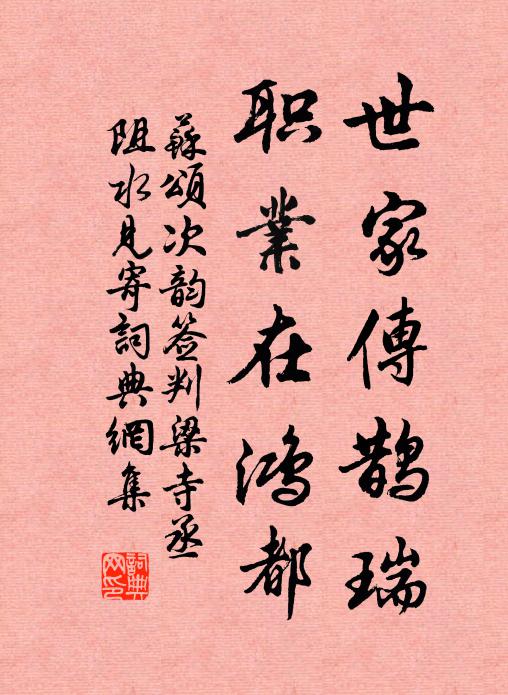 世家傳鵲瑞
职業在鸿都
蘇頌次韵签判梁寺丞
阻水見寄詞典網集
詞典网印